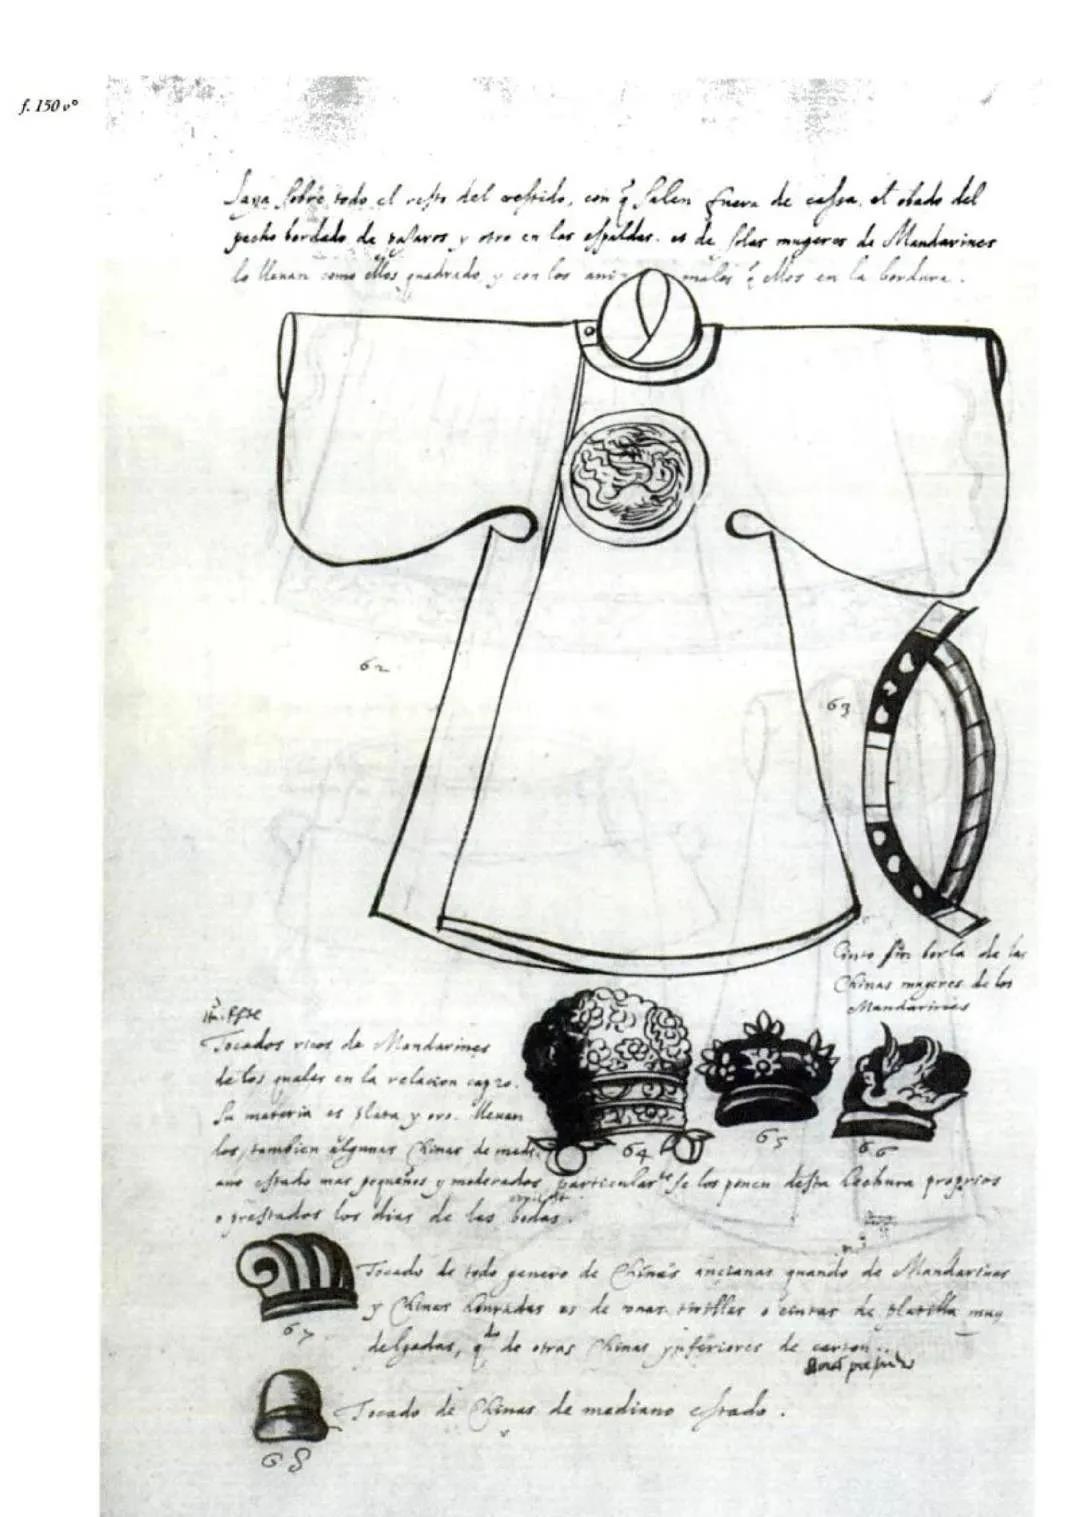 f. 150 vº
Saya sobre todo el resto del vestido, con q̃ salen fuera de cassa, el obado del
pecho bordado de pajaros y otro en las espaldas. es de solas mugeres de Mandarines
lo lleuan como ellos quadrado, y con los ani males q̃ ellos en la bordura.
62
63
Cinto sin borla de las
Chinas mugeres de los
Mandarines
Tocados ricos de Mandarinas
de los quales en la relacion cap
Su materia es plata y oro. lleuan
los tambien algunas Chinas de medi
ano estado mas pequeños y moderados, particular^te se los ponen desta hechura proprios
o prestados los dias de las bodas.
64
65
66
Tocado de todo genero de Chinas ancianas quando de Mandarinas
y Chinas honradas es de unas tirillas o cintas de platilla muy
delgadas, q^do de otras Chinas ynferiores de carton
67
Tocado de Chinas de mediano estado.
68